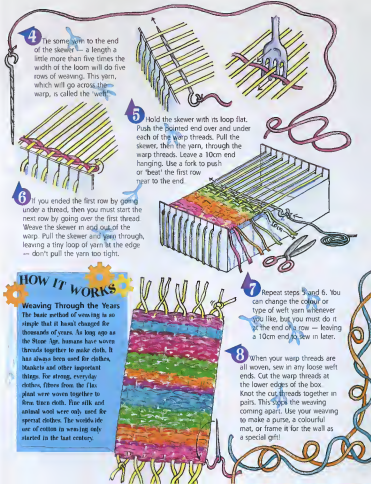 4 Tie some yarn to the end
of the skewer — a length a
little more than five times the
width of the loom will do five
rows of weaving. This yarn,
which will go across the
warp, is called the 'weft'.
5 Hold the skewer with its loop flat.
Push the pointed end over and under
each of the warp threads. Pull the
skewer, then the yarn, through the
warp threads. Leave a 10cm end
hanging. Use a fork to push
or 'beat' the first row
near to the end.
6 If you ended the first row by going
under a thread, then you must start the
next row by going over the first thread.
Weave the skewer in and out of the
warp. Pull the skewer and yarn through,
leaving a tiny loop of yarn at the edge
— don't pull the yarn too tight.
HOW IT WORKS
Weaving Through the Years
The basic method of weaving is so
simple that it hasn't changed for
thousands of years. As long ago as
the Stone Age, humans have woven
threads together to make cloth. It
has always been used for clothes,
blankets and other important
things. For strong, everyday
clothes, fibres from the flax
plant were woven together to
form linen cloth. Fine silk and
animal wool were only used for
special clothes. The worldwide
use of cotton in weaving only
started in the last century.
7 Repeat steps 5 and 6. You
can change the colour or
type of weft yarn whenever
you like, but you must do it
at the end of a row — leaving
a 10cm end to sew in later.
8 When your warp threads are
all woven, sew in any loose weft
ends. Cut the warp threads at
the lower edges of the box.
Knot the cut threads together in
pairs. This stops the weaving
coming apart. Use your weaving
to make a purse, a colourful
mat, or frame it for the wall as
a special gift!